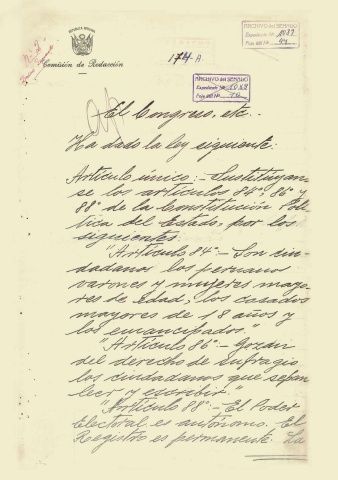 REPUBLICA PERUANA
Comisión de Redacción
174-A
ARCHIVO del SENADO
ARCHIVO del SENADO
El Congreso, etc..
Ha dado la ley siguiente:
Artículo único:- Sustitúyan-
se los artículos 84°, 86° y
88° de la Constitución Polí-
tica del Estado, por los
siguientes:
"Artículo 84°- Son ciu-
dadanos los peruanos
varones y mujeres mayo-
res de Edad, los casados
mayores de 18 años y
los emancipados."
"Artículo 86°:- Gozan
del derecho de sufragio
los ciudadanos que sepan
leer y escribir."
"Artículo 88°- El Poder
Electoral es autónomo. El
Registro es permanente. La